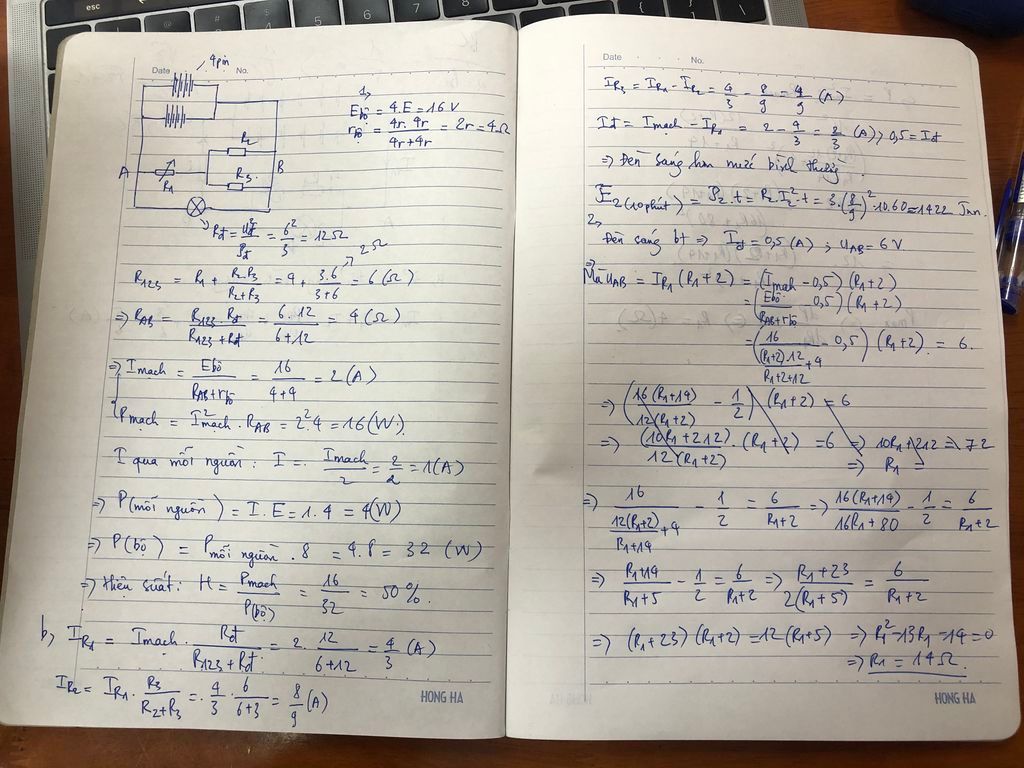 esc
Date No.
4 pin
A
B
R1
R2
R3
1,
Ebộ = 4.E = 16 V
rbộ = 4r. 4r / 4r+4r = 2r = 4Ω
Rđ = Uđ² / Pđ = 6² / 3 = 12Ω
2Ω
R123 = R1 + R2.R3 / R2+R3 = 4 + 3.6 / 3+6 = 6 (Ω)
⇒ RAB = R123. Rđ / R123 + Rđ = 6.12 / 6+12 = 4 (Ω)
⇒ Imạch = Ebộ / RAB+rbộ = 16 / 4+4 = 2 (A)
Pmạch = I²mạch. RAB = 2².4 = 16 (W)
I qua mỗi nguồn: I = Imạch / 2 = 2 / 2 = 1 (A)
⇒ P(mỗi nguồn) = I.E = 1.4 = 4(W)
⇒ P(bộ) = Pmỗi nguồn . 8 = 4.8 = 32 (W)
⇒ Hiệu suất: H = Pmạch / P(bộ) = 16 / 32 = 50%.
b, IR1 = Imạch. Rđ / R123 + Rđ = 2. 12 / 6+12 = 4/3 (A)
IR2 = IR1. R3 / R2+R3 = 4/3 . 6 / 6+3 = 8/9 (A)
HONG HA
Date No.
IR3 = IR1 - IR2 = 4/3 - 8/9 = 4/9 (A)
Iđ = Imạch - IR1 = 2 - 4/3 = 2/3 (A) > 0,5 = Iđ
⇒ Đèn sáng hơn mức bình thường.
E2(10phút) = P2.t = R2.I2².t = 3.(8/9)².10.60 = 1422 Jun.
2,
Đèn sáng bt ⇒ Iđ = 0,5 (A) ; UAB = 6 V
Mà UAB = IR1 (R1+2) = (Imạch - 0,5) (R1+2)
= (Ebộ / RAB+rbộ - 0,5) (R1+2)
= (16 / (R1+2).12 / R1+2+12 + 4 - 0,5) (R1+2) = 6.
⇒ (16(R1+14) / 12(R1+2) - 1/2) (R1+2) = 6
⇒ (10R1+212) / 12(R1+2) . (R1+2) = 6 ⇒ 10R1+212 = 72
⇒ R1 =
⇒ 16 / 12(R1+2) / R1+14 + 4 - 1/2 = 6 / R1+2 ⇒ 16(R1+14) / 16R1+80 - 1/2 = 6 / R1+2
⇒ R1+14 / R1+5 - 1/2 = 6 / R1+2 ⇒ R1+23 / 2(R1+5) = 6 / R1+2
⇒ (R1+23)(R1+2) = 12(R1+5) ⇒ R1² - 13R1 - 14 = 0
⇒ R1 = 14Ω.
HONG HA